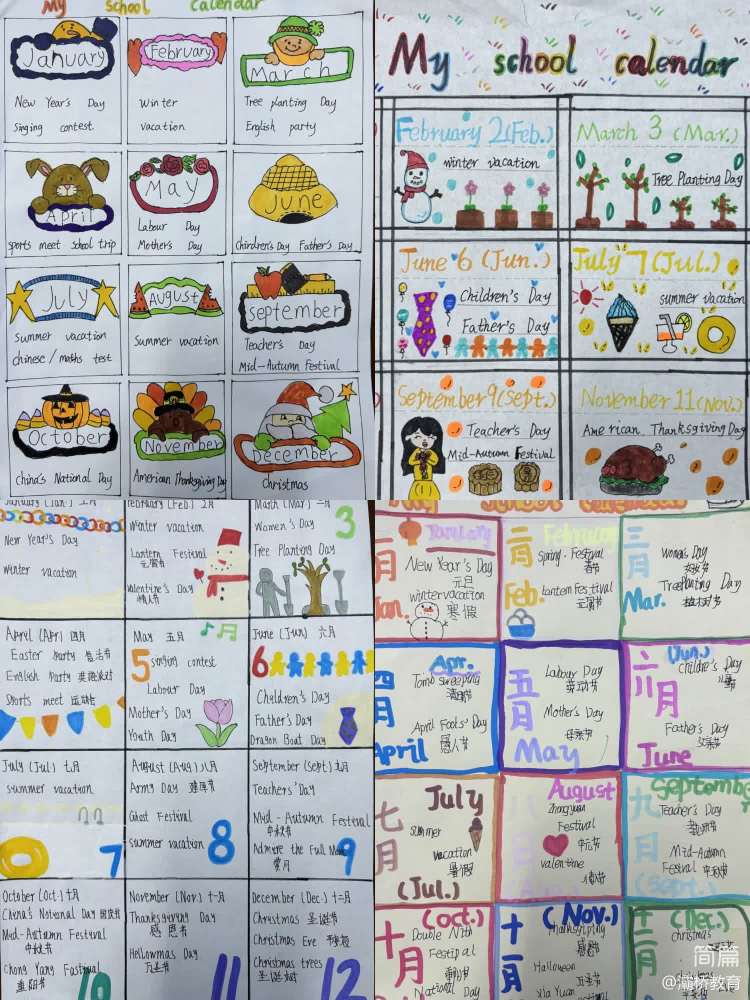 My school calendar
January
New Year's Day
singing contest
February
winter
vacation
March
Tree planting Day
English party
April
sports meet school trip
May
Labour Day
Mother's Day
June
Chirdren's Day Father's Day
July
summer vacation
chinese / maths test
August
Summer vacation
September
Teacher's Day
Mid-Autumn Festival
October
China's National Day
November
American Thanksgiving Day
December
Christmas
My school calendar
February 2 (Feb.)
winter vacation
March 3 (Mar.)
Tree Planting Day
June 6 (Jun.)
Children's Day
Father's Day
July 7 (Jul.)
summer vacation
September 9 (Sept.)
Teacher's Day
Mid-Autumn Festival
November 11 (Nov.)
American Thanksgiving Day
January (Jan.) 一月
New Year's Day
winter vacation
February (Feb) 2月
winter vacation
Lantern Festival
元宵节
Valentine's Day
情人节
March (Mar) 三月
3
Women's Day
Tree Planting Day
April (Apr) 四月
Easter Party 复活节
English Party 英语派对
Sports meet 运动会
May 五月
5
singing contest
Labour Day
Mother's Day
Youth Day
June (Jun) 六月
6
Children's Day
Father's Day
Dragon Boat Day
July (Jul) 七月
summer vacation
7
August (Aug) 八月
Army Day 建军节
Ghost Festival
summer vacation
8
September (Sept) 九月
Teachers' Day
Mid-Autumn Festival
中秋节
Admire the Full Moon
赏月
9
October (Oct) 十月
China's National Day 国庆节
Mid-Autumn Festival
中秋节
Chong Yang Festival
重阳节
10
November (Nov.) 十一月
Thanksgiving Day
感恩节
Hellowmas Day
万圣节
11
December (Dec.) 十二月
Christmas 圣诞节
Christmas Eve 平安夜
Christmas trees
圣诞树
12
My school calendar
January
一月
Jan.
New Year's Day
元旦
winter vacation
寒假
February
二月
Feb.
Spring Festival
春节
Lantern Festival
元宵节
三月
Mar.
Women's Day
妇女节
Tree Planting Day
植树节
Apr.
四月
April
Tomb sweeping
清明节
April Fools' Day
愚人节
五月
May
Labour Day
劳动节
Mother's Day
母亲节
(Jun.)
六月
June
Children's Day
儿童节
Father's Day
父亲节
July
七月
summer
vacation
暑假
(Jul.)
August
八月
Zhongyuan
Festival
中元节
valentine
情人节
Aug.
September
九月
Teacher's Day
教师节
Mid-Autumn
Festival 中秋节
(Sept.)
(Oct.)
十月
Double Ninth
Festipal
重阳节
National Day
(Nov.)
十一月
Thanksgiving
感恩节
Halloween
万圣节
Xia Yuan
(Dec.)
十二月
Christmas
简篇
@灞桥教育